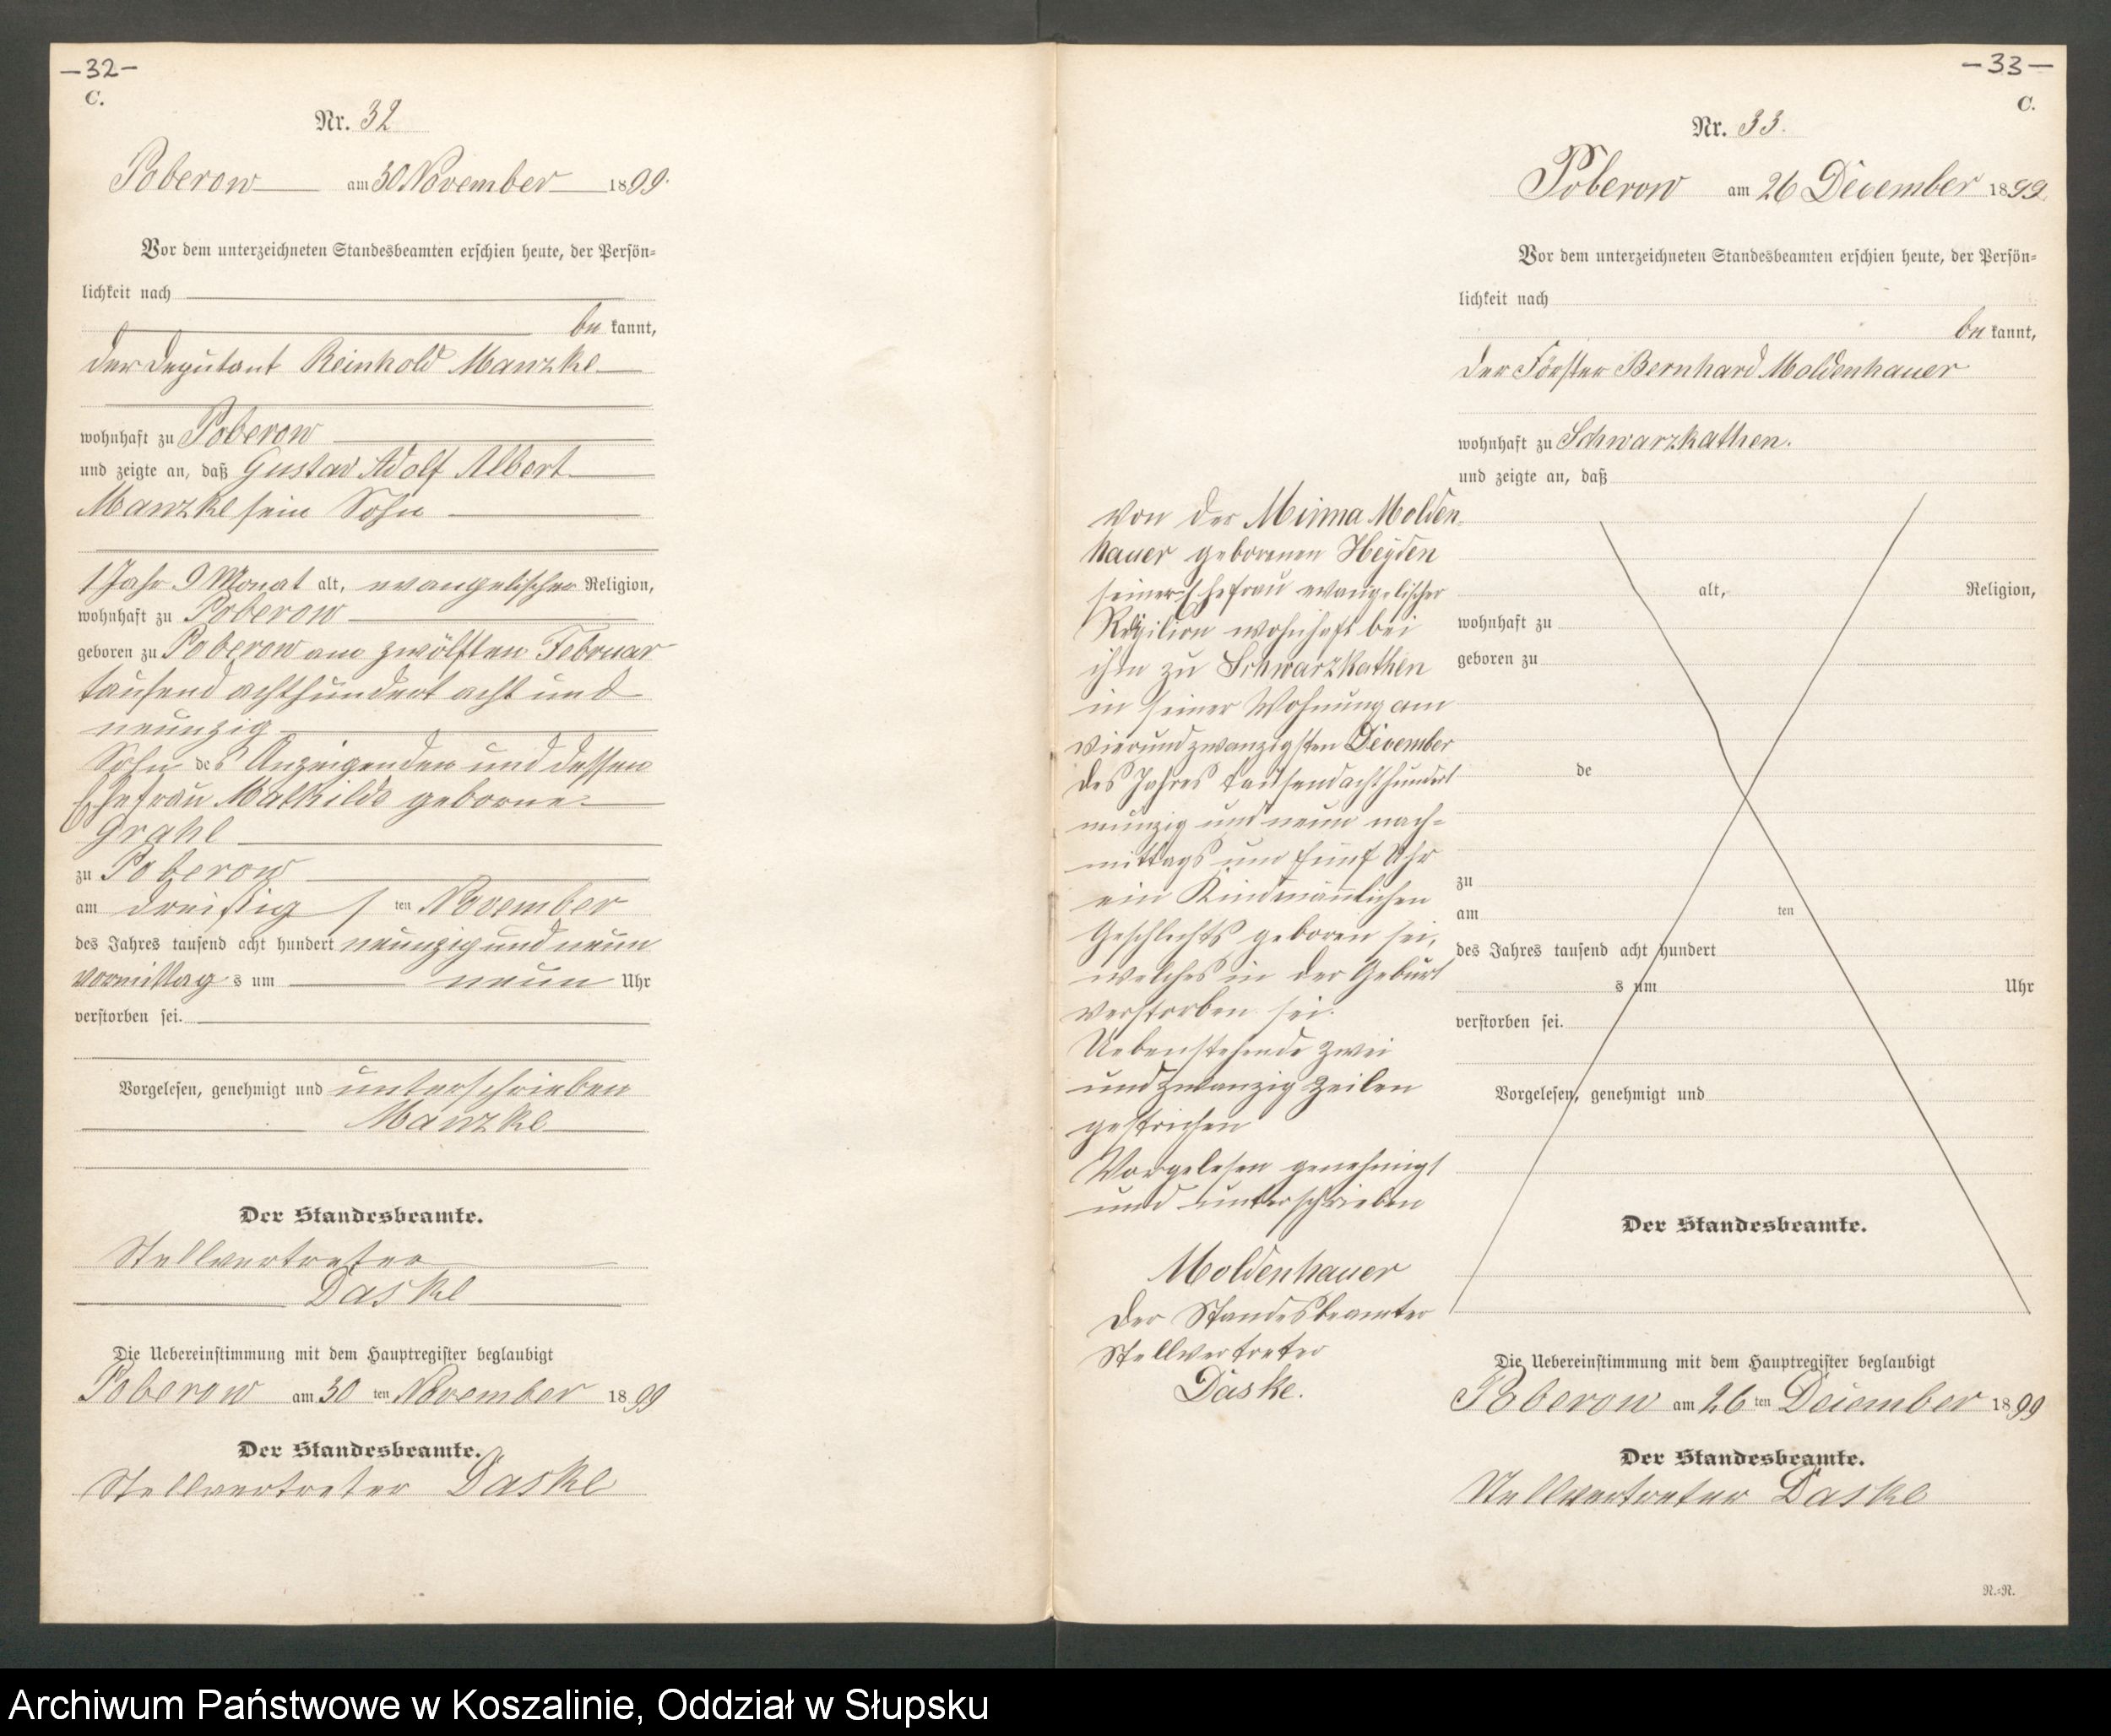 —32—
C.
Nr. 32
Poberow am 30 November 1899.
Vor dem unterzeichneten Standesbeamten erschien heute, der Persön-
lichkeit nach
be kannt,
der Deputant Reinhold Manzke
wohnhaft zu Poberow
und zeigte an, daß Gustav Adolf Albert
Manzke sein Sohn
1 Jahr 9 Monat alt, evangelischer Religion,
wohnhaft zu Poberow
geboren zu Poberow am zwölften Februar
tausend achthundert acht und
neunzig
Sohn des Anzeigenden und dessen
Ehefrau Mathilde geborne
Grahl
zu Poberow
am dreißig / ten November
des Jahres tausend acht hundert neunzig und neun
vormittag s um neun Uhr
verstorben sei.
Vorgelesen, genehmigt und unterschrieben
Manzke
Der Standesbeamte.
Stellvertreter
Daske
Die Uebereinstimmung mit dem Hauptregister beglaubigt
Poberow am 30 ten November 1899
Der Standesbeamte.
Stellvertreter Daske
—33—
C.
Nr. 33.
Poberow am 26 December 1899.
Vor dem unterzeichneten Standesbeamten erschien heute, der Persön-
lichkeit nach
be kannt,
der Förster Bernhard Moldenhauer
wohnhaft zu Schwarzkathen.
und zeigte an, daß
von der Minna Molden-
hauer geborenen Heyden
seiner Ehefrau evangelischer
Religilion wohnhaft bei
ihm zu Schwarzkathen
in seiner Wohnung am
vierundzwanzigsten December
des Jahres tausendachthundert
neunzig und neun nach-
mittags um fünf Uhr
ein Kind männlichen
Geschlechts geboren sei,
welches in der Geburt
verstorben sei.
Uebenstehende zwei
und zwanzig Zeilen
gestrichen
Vorgelesen genehmigt
und unterschrieben
Moldenhauer
Der Standesbeamter
Stellvertreter
Daske.
alt, Religion,
wohnhaft zu
geboren zu
de
zu
am ten
des Jahres tausend acht hundert
s um Uhr
verstorben sei.
Vorgelesen, genehmigt und
Der Standesbeamte.
Die Uebereinstimmung mit dem Hauptregister beglaubigt
Poberow am 26 ten December 1899
Der Standesbeamte.
Stellvertreter Daske
N.=N.
Archiwum Państwowe w Koszalinie, Oddział w Słupsku